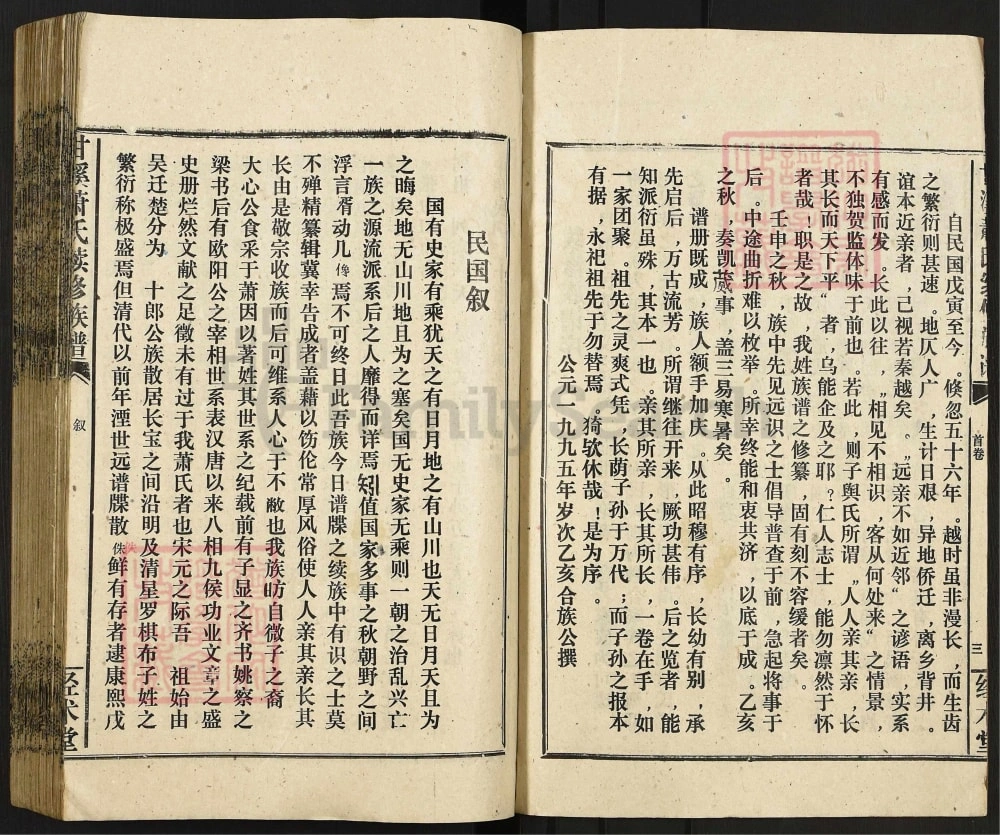 自民国戊寅至今。倏忽五十六年。越时虽非漫长，而生齿
之繁衍则甚速。地仄人广，生计日艰，异地侨迁，离乡背井。
谊本近亲者，已视若秦越矣。“远亲不如近邻”之谚语，实系
有感而发。长此以往，“相见不相识，客从何处来”之情景，
不独贺监体味于前也。若此，则子舆氏所谓“人人亲其亲，长
其长而天下平”者，乌能企及之耶？仁人志士，能勿凛然于怀
者哉！职是之故，我姓族谱之修纂，固有刻不容缓者矣。
壬申之秋，族中先见远识之士倡导普查于前，急起将事于
后。中途曲折难以枚举。所幸终能和衷共济，以底于成。乙亥
之秋，奏凯蒇事，盖三易寒暑矣。
谱册既成，族人额手加庆。从此昭穆有序，长幼有别，承
先启后，万古流芳。所谓继往开来，厥功甚伟。后之览者，能
知派衍虽殊，其本一也。亲其所亲，长其所长，一卷在手，如
一家团聚。祖先之灵爽式凭，长荫子孙于万代；而子孙之报本
有据，永祀祖先于勿替焉。猗欤休哉！是为序。
公元一九九五年岁次乙亥合族公撰
首卷
三
民国叙
国有史家有乘犹天之有日月地之有山川也天无日月天且为
之晦矣地无山川地且为之塞矣国无史家无乘则一朝之治乱兴亡
一族之源流派系后之人靡得而详焉矧值国家多事之秋朝野之间
浮言胥动儿傢焉不可终日此吾族今日谱牒之续族中有识之士莫
不殚精纂辑冀幸告成者盖藉以饬伦常厚风俗使人人亲其亲长其
长由是敬宗收族而后可维系人心于不敝也我族昉自微子之裔
大心公食采于萧因以著姓其世系之纪载前有子显之齐书姚察之
梁书后有欧阳公之宰相世系表汉唐以来八相九侯功业文章之盛
史册烂然文献之足徵未有过于我萧氏者也宋元之际吾 祖始由
吴迁楚分为 十郎公族散居长宝之间沿明及清星罗棋布子姓之
繁衍称极盛焉但清代以前年湮世远谱牒散佚鲜有存者逮康熙戊
甘溪萧氏续修族谱
叙
经术堂
FamilySearch